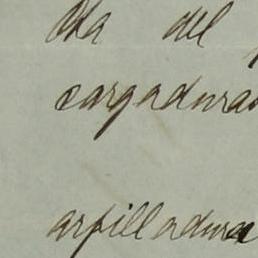 del
cargaduras
arpilladura